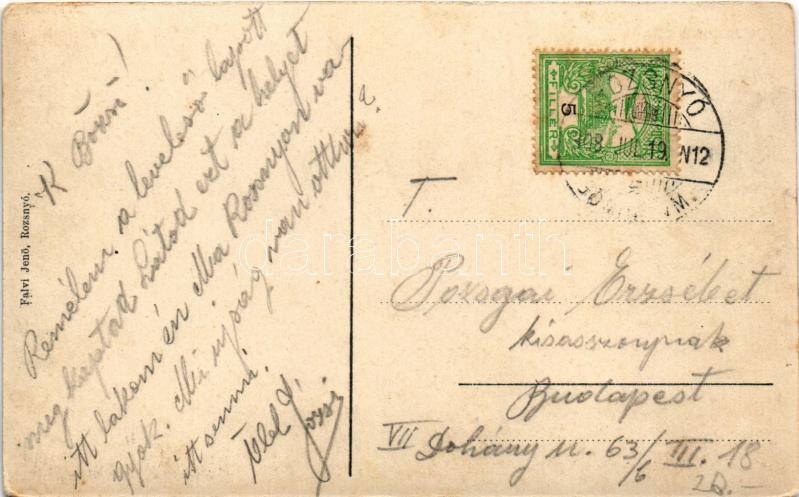 K Böxsi!
Remélem a levelező lapott
megkaptad Látod ezt a helyet
itt lakom én Ma Rosnyon va
gyok. Mi ujság van otthon?
itt semmi.
Ölel
Józsi
Falvi Jenő, Rozsnyó.
FILLER
5
ROZSNYÓ
908 JUL. 19. N12
T.
Pozsgai Erzsébet
kisasszonynak
Budapest
VII Dohány u. 63/6 III. 18
20.-
darabanth